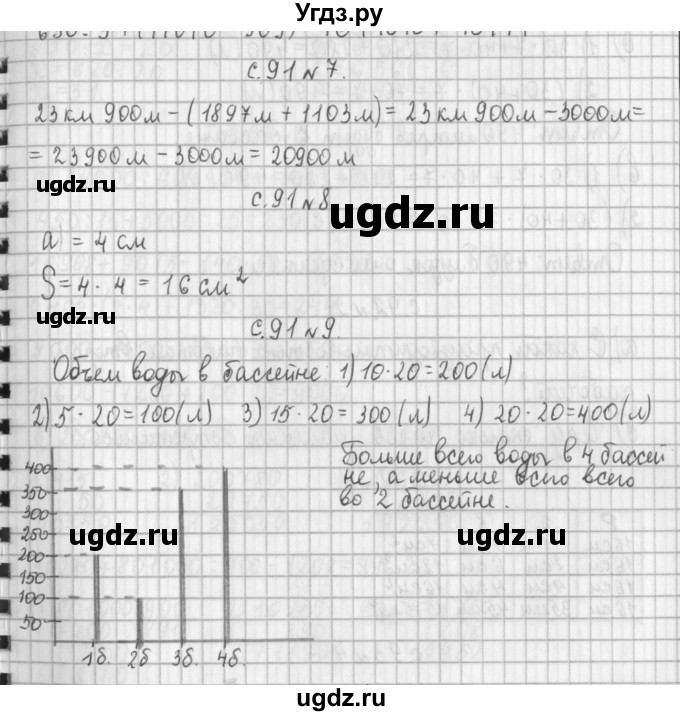 Угдз.ру
с.91 №7.
23 км 900м - (1897м + 1103м) = 23 км 900м - 3000м =
= 23900м - 3000м = 20900 м
ugdz.ru
с.91 №8
ugdz.ru
a = 4 см
S = 4 · 4 = 16 см²
ugdz.ru
с.91 №9.
Объем воды в бассейне 1) 10·20=200(л)
2) 5 · 20 = 100(л) 3) 15·20 = 300 (л) 4) 20·20=400(л)
Больше всего воды в 4 бассей
не, а меньше всего всего
во 2 бассейне.
400
350
300
250
200
150
100
50
1б. 2б 3б. 4б.
ugdz.ru
ugdz.ru
ugdz.ru